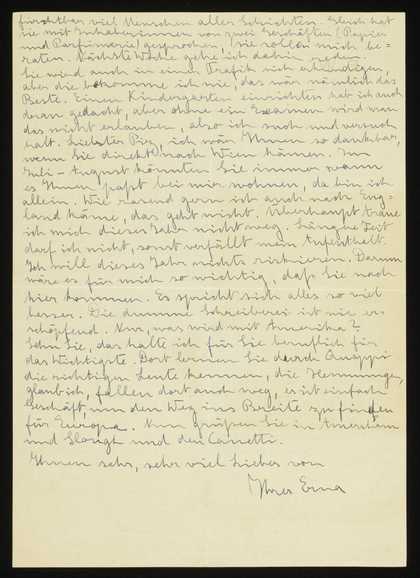 furchtbar viel Menschen aller Schichten. Gleich hat
sie mit Inhaberinnen von zwei Geschäften (Papier
und Parfümerie) gesprochen, (sie sollen mich be-
raten. Nächste Woche gehe ich dahin reden.
Sie wird auch in einer Trafik sich erkundigen,
aber die bekomme ich nie, das wär nämlich das
Beste. Einen Kindergarten einrichten hab ich auch
dran gedacht, aber ohne ein Examen wird man
das nicht erlauben, also ich such und versuch
halt. Liebster Piz, ich wär Ihnen so dankbar,
wenn Sie direkt nach Wien kämen. Im
Juli – August könnten Sie immer wann
es Ihnen paßt bei mir wohnen, da bin ich
allein. Wie rasend gern ich auch nach Eng-
land käme, das geht nicht. Überhaupt traue
ich mich dieses Jahr nicht weg. Längere Zeit
darf ich nicht, sonst verfällt mein Aufenthalt.
Ich will dieses Jahr nichts riskieren. Darum
wäre es für mich so wichtig, daß Sie nach
hier kommen. Es spricht sich alles so viel
besser. Die dumme Schreiberei ist nie er-
schöpfend. Nun, was wird mit Amerika?
Sehn Sie, das halte ich für Sie beruflich für
das Wichtigste. Dort lernen Sie durch Quappi
die richtigen Leute kennen, die Hemmungen,
glaub ich, fallen dort auch weg, es ist einfach
Geschäft, um den Weg ins Breite zu finden
für Europa. Nun grüßen Sie in Amersham
und Slough und den Canetti.
Ihnen sehr, sehr viel Liebes von
Ihrer Erna